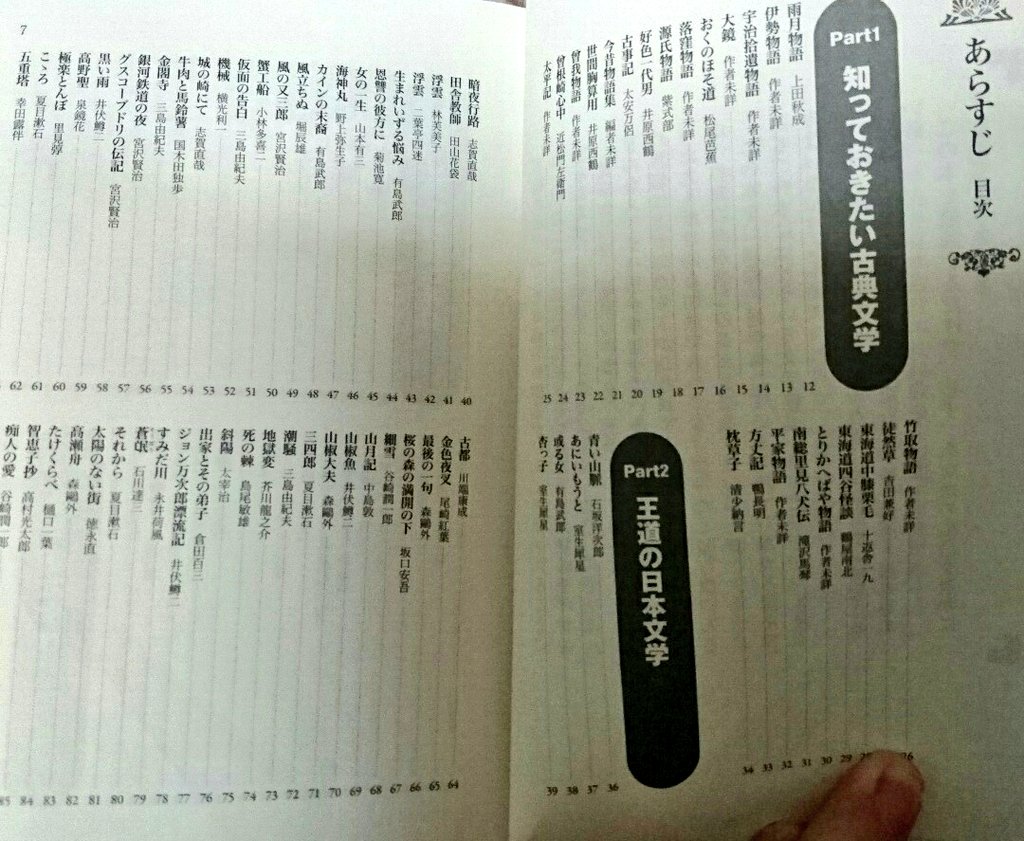 あらすじ 目次
Part1 知っておきたい古典文学
雨月物語 上田秋成 12
伊勢物語 作者未詳 13
宇治拾遺物語 作者未詳 14
大鏡 作者未詳 15
おくのほそ道 松尾芭蕉 16
落窪物語 作者未詳 17
源氏物語 紫式部 18
好色一代男 井原西鶴 19
古事記 太安万侶 20
今昔物語集 編者未詳 21
世間胸算用 井原西鶴 22
曾我物語 作者未詳 23
曾根崎心中 近松門左衛門 24
太平記 作者未詳 25
竹取物語 作者未詳
徒然草 吉田兼好
東海道中膝栗毛 十返舎一九
東海道四谷怪談 鶴屋南北 29
とりかへばや物語 作者未詳 30
南総里見八犬伝 滝沢馬琴 31
平家物語 作者未詳 32
方丈記 鴨長明 33
枕草子 清少納言 34
Part2 王道の日本文学
青い山脈 石坂洋次郎 36
あにいもうと 室生犀星 37
或る女 有島武郎 38
杏っ子 室生犀星 39
7
暗夜行路 志賀直哉 40
田舎教師 田山花袋 41
浮雲 林芙美子 42
浮雲 二葉亭四迷 43
生まれいずる悩み 有島武郎 44
恩讐の彼方に 菊池寛 45
女の一生 山本有三 46
海神丸 野上弥生子 47
カインの末裔 有島武郎 48
風立ちぬ 堀辰雄 49
風の又三郎 宮沢賢治 50
蟹工船 小林多喜二 51
仮面の告白 三島由紀夫 52
機械 横光利一 53
城の崎にて 志賀直哉 54
牛肉と馬鈴薯 国木田独歩 55
金閣寺 三島由紀夫 56
銀河鉄道の夜 宮沢賢治 57
グスコーブドリの伝記 宮沢賢治 58
黒い雨 井伏鱒二 59
高野聖 泉鏡花 60
極楽とんぼ 里見弴 61
こゝろ 夏目漱石 62
五重塔 幸田露伴
古都 川端康成 64
金色夜叉 尾崎紅葉 65
最後の一句 森鷗外 66
桜の森の満開の下 坂口安吾 67
細雪 谷崎潤一郎 68
山月記 中島敦 69
山椒魚 井伏鱒二 70
山椒大夫 森鷗外 71
三四郎 夏目漱石 72
潮騒 三島由紀夫 73
地獄変 芥川龍之介 74
死の棘 島尾敏雄 75
斜陽 太宰治 76
出家とその弟子 倉田百三 77
ジョン万次郎漂流記 井伏鱒二 78
すみだ川 永井荷風 79
蒼氓 石川達三 80
それから 夏目漱石 81
太陽のない街 徳永直 82
高瀬舟 森鷗外 83
たけくらべ 樋口一葉 84
智恵子抄 高村光太郎 85
痴人の愛 谷崎潤一郎